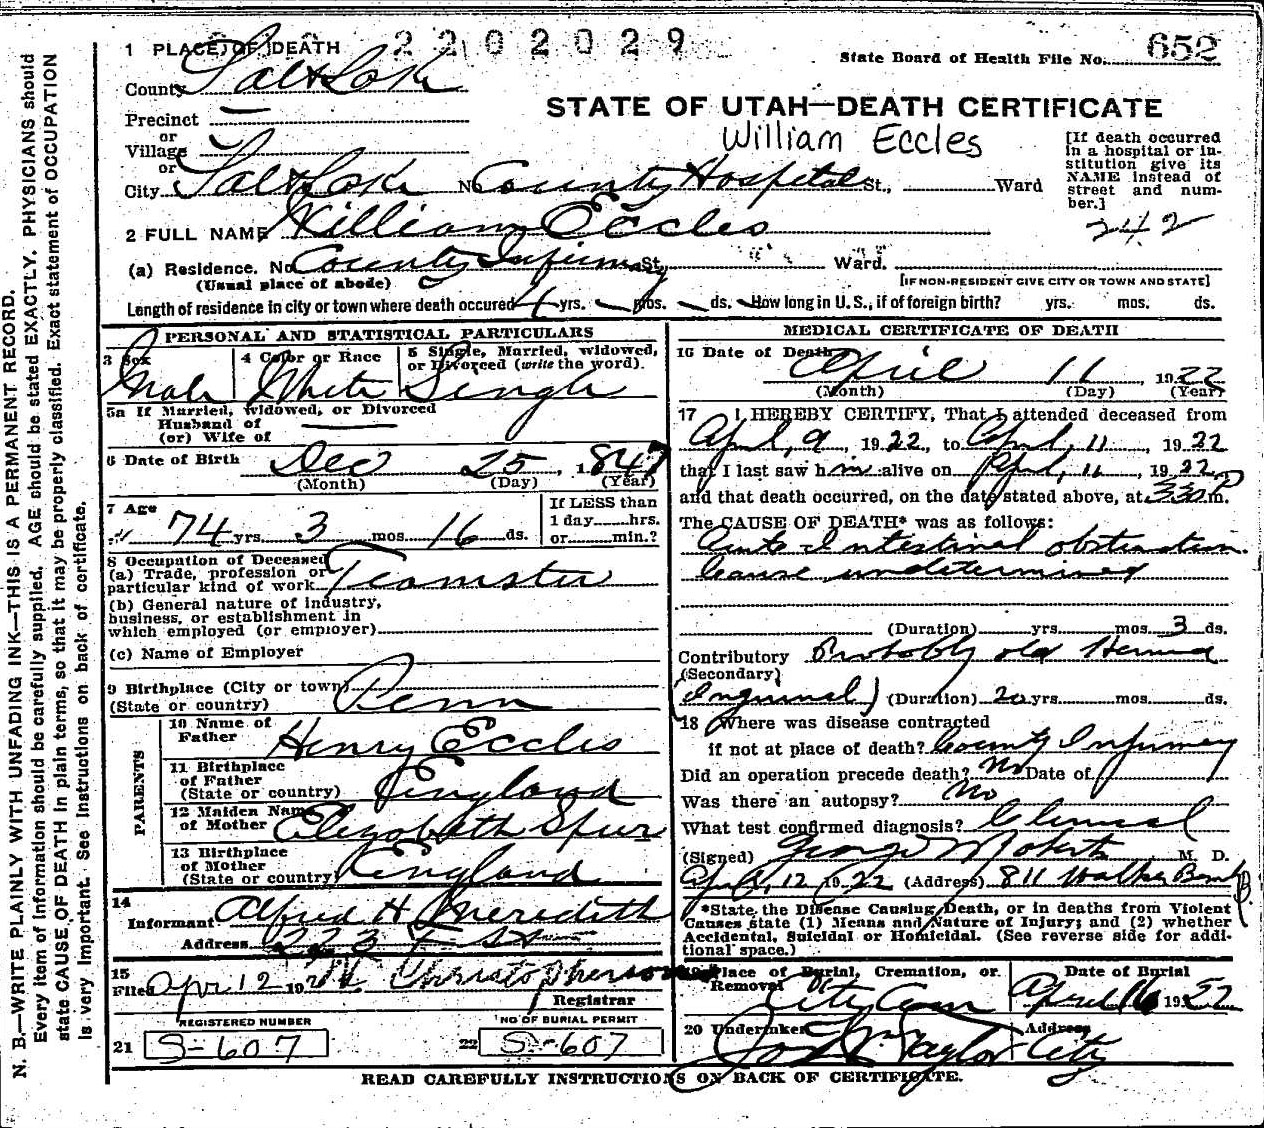 1 PLACE OF DEATH 2202029
State Board of Health File No. 652
County Salt Lake
STATE OF UTAH—DEATH CERTIFICATE
William Eccles
Precinct
or
Village
or
City Salt Lake No. County Hospital St., Ward
[If death occurred
in a hospital or in-
stitution give its
NAME instead of
street and num-
ber.]
242
2 FULL NAME William Eccles
(a) Residence. No. County Infirmary St. Ward.
(Usual place of abode) [IF NON-RESIDENT GIVE CITY OR TOWN AND STATE]
Length of residence in city or town where death occured 4 yrs. mos. ds. How long in U. S., if of foreign birth? yrs. mos. ds.
PERSONAL AND STATISTICAL PARTICULARS
3 Sex 4 Color or Race 5 Single, Married, Widowed,
or Divorced (write the word).
Male White Single
5a If Married, Widowed, or Divorced
Husband of
(or) Wife of
6 Date of Birth Dec 25, 1847
(Month) (Day) (Year)
7 Age 74 yrs. 3 mos. 16 ds.
If LESS than
1 day hrs.
or min.?
8 Occupation of Deceased
(a) Trade, profession or
particular kind of work Teamster
(b) General nature of industry,
business, or establishment in
which employed (or employer)
(c) Name of Employer
9 Birthplace (City or town)
(State or country) Penn
PARENTS
10 Name of
Father Henry Eccles
11 Birthplace
of Father
(State or country) England
12 Maiden Name
of Mother Elezabath Spur
13 Birthplace
of Mother
(State or country) England
14
Informant Alfred H Meredith
Address 223 F St
15
Filed Apr 12 19 Christopherson
Registrar
REGISTERED NUMBER NO OF BURIAL PERMIT
21 S-607 22 S-607
MEDICAL CERTIFICATE OF DEATH
16 Date of Death April 11, 1922
(Month) (Day) (Year)
17 I HEREBY CERTIFY, That I attended deceased from
April, 9, 1922, to April, 11, 1922
that I last saw him alive on April, 11, 1922
and that death occurred, on the date stated above, at 330 P m.
The CAUSE OF DEATH* was as follows:
Acute Intestinal obstruction.
Cause undetermined
(Duration) yrs. mos. 3 ds.
Contributory Probably old Hernia
(Secondary)
(Inguinal) (Duration) 20 yrs. mos. ds.
18 Where was disease contracted
if not at place of death? County Infirmary
Did an operation precede death? No Date of
Was there an autopsy? No
What test confirmed diagnosis? Clinical
(Signed) George Roberts M. D.
April, 12, 1922 (Address) 811 Walker Bank B.
*State the Disease Causing Death, or in deaths from Violent
Causes state (1) Means and Nature of Injury; and (2) whether
Accidental, Suicidal or Homicidal. (See reverse side for addi-
tional space.)
19 Place of Burial, Cremation, or Removal Date of Burial
City Cem April 16 1922
20 Undertaker Address
Jos Wm Taylor City
READ CAREFULLY INSTRUCTIONS ON BACK OF CERTIFICATE.
N. B.—WRITE PLAINLY WITH UNFADING INK—THIS IS A PERMANENT RECORD.
Every item of information should be carefully supplied. AGE should be stated EXACTLY. PHYSICIANS should
state CAUSE OF DEATH in plain terms, so that it may be properly classified. Exact statement of OCCUPATION
is very important. See instructions on back of certificate.